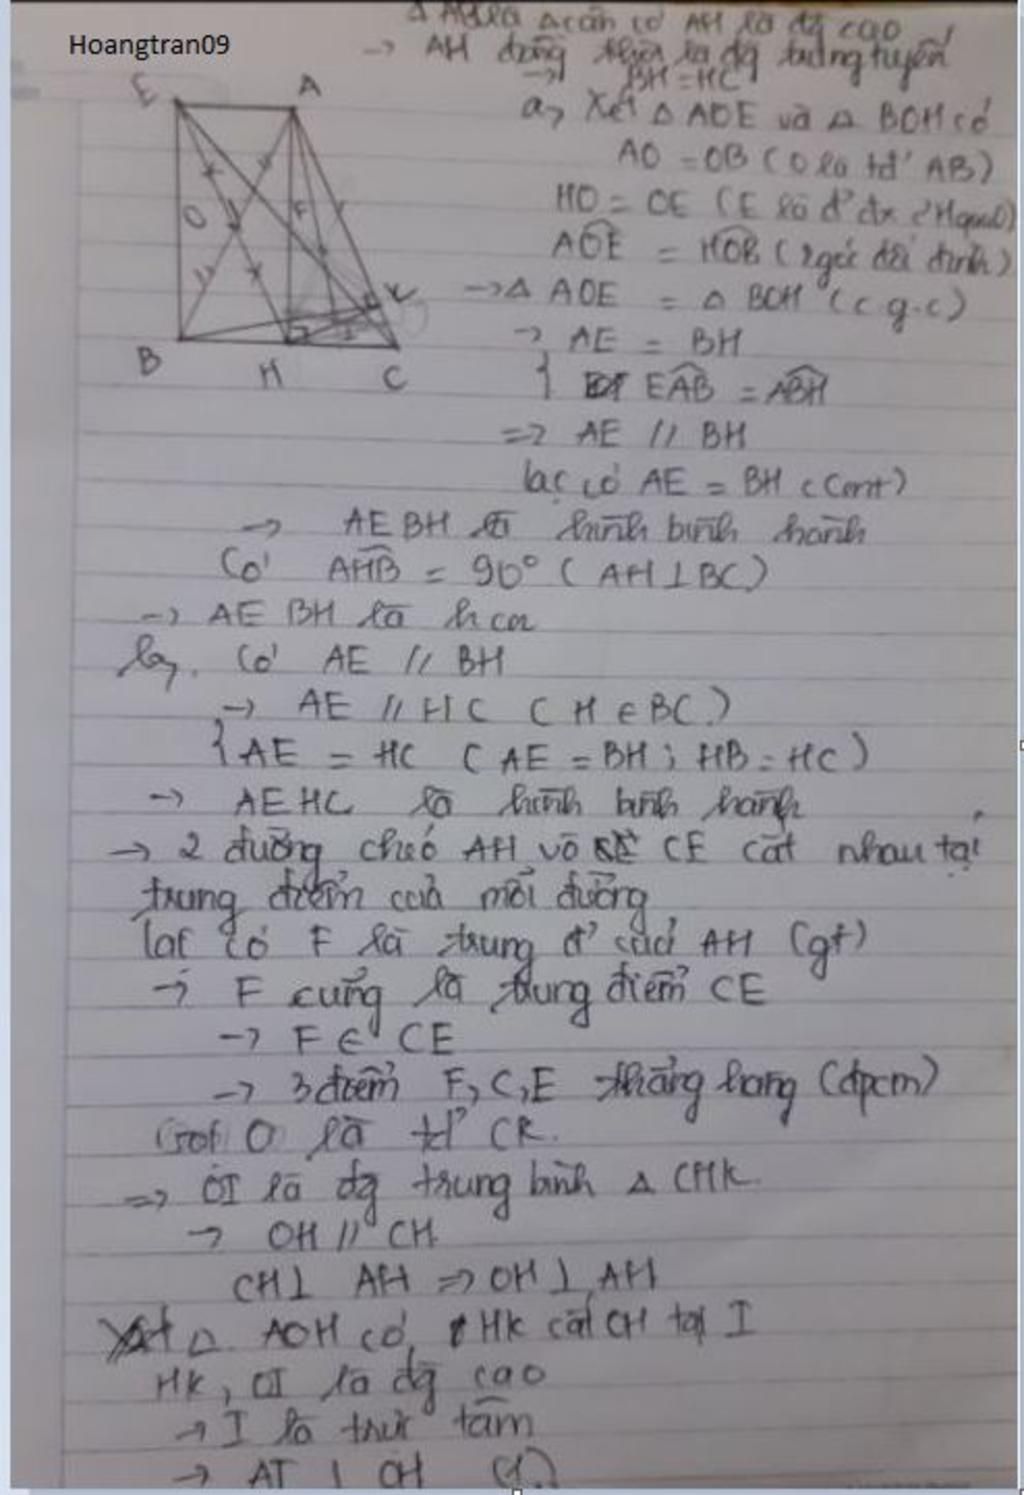 Hoangtran09
Δ ABC là Δ cân có AH là đg cao
→ AH đồng thời là đg trung tuyến
→ BH = HC
a, Xét Δ AOE và Δ BOH có
AO = OB (O là tđ' AB)
HO = OE (E là đ' đx 
AOE = HOB (2 góc đối đỉnh)
→ Δ AOE = Δ BOH (c.g.c)
→ AE = BH
EAB = ABH
=> AE // BH
lại có AE = BH (cmt)
→ AEBH là hình bình hành
Có AHB = 90° (AH⊥BC)
→ AEBH là hcn
b, Có AE // BH
→ AE // HC (H ∈ BC)
{ AE = HC (AE = BH; HB = HC)
→ AEHC là hình bình hành
→ 2 đường chéo AH và CE cắt nhau tại
trung điểm của mỗi đường
lại có F là trung đ' của AH (gt)
→ F cũng là trung điểm CE
→ F ∈ CE
→ 3 điểm F, C, E thẳng hàng (đpcm)
Gọi O là tđ' CK.
=> OI là đg trung bình Δ CHK
→ OH // CH
CH⊥ AH => OH⊥ AH
Xét Δ AOH có, HK cắt CH tại I
HK, OI là đg cao
→ I là trực tâm
→ AI ⊥ OH
E
A
O
F
K
I
B
H
C